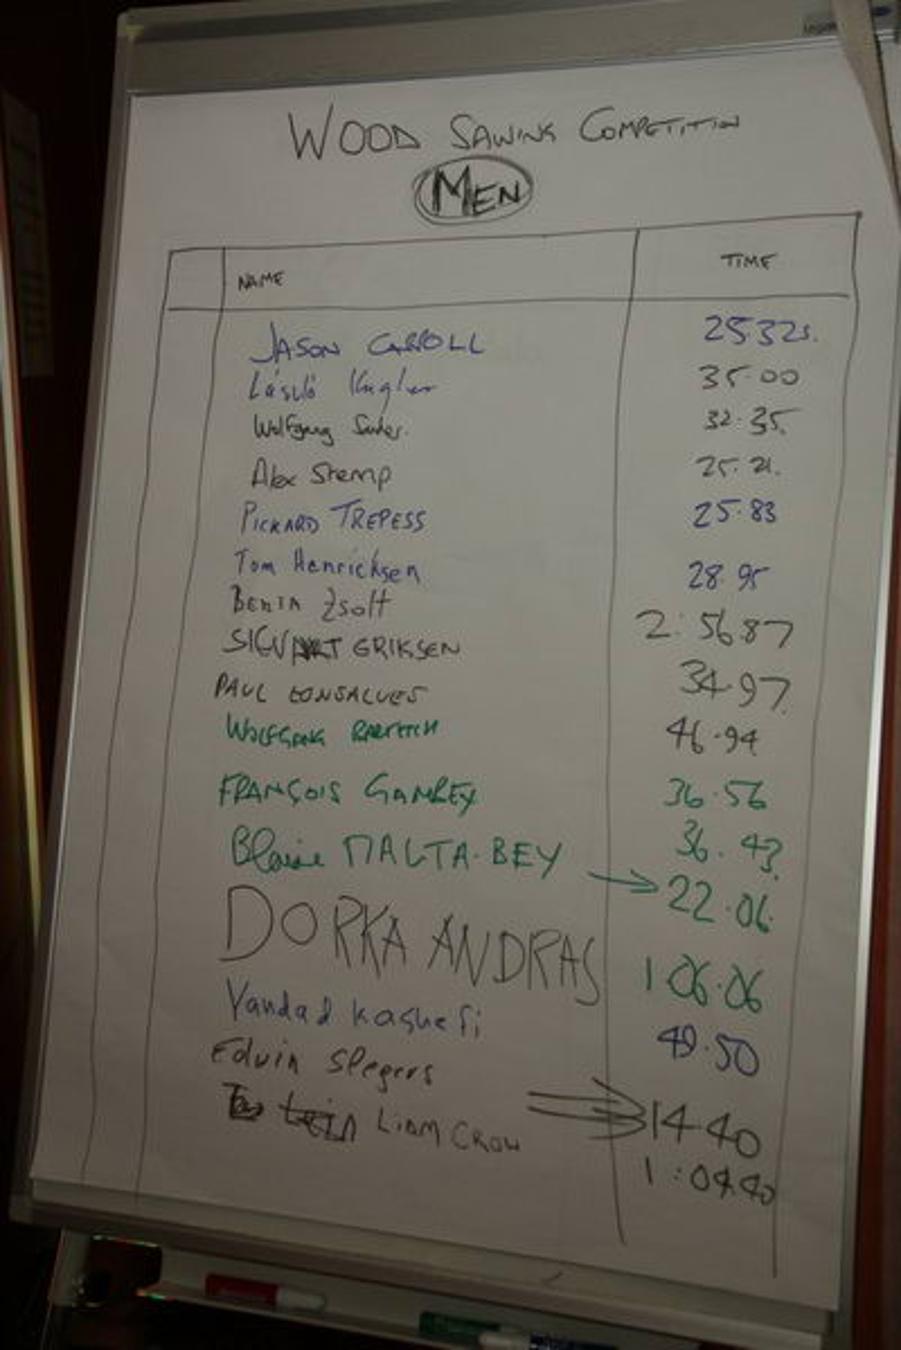 WOOD SAWING COMPETITION
MEN
NAME TIME
JASON CARROLL 25.32s.
László Kugler 35.00
Wolfgang 32.35
Alex Stemp 25.21.
PICKARD TREPESS 25.83
Tom Henricksen 28.95
BENTA Zsolt 2:56.87
SIGVART ERIKSEN 34.97
PAUL GONSALVES 46.94
WOLFGANG
FRANÇOIS GAMBEY 36.56
Blaise MALTA-BEY 36.43
→ 22.06
DORKA ANDRAS 1 06.06
Vandad Kashefi 49.50
Edwin Slegers 14.40
LIAM CROW 1:04.40